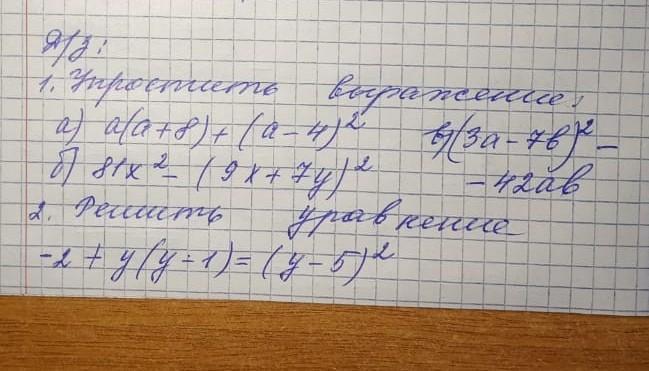 Д/з:
1. Упростить выражение:
а) a(a+8)+(a-4)²
б) 81x²-(9x+7y)²
в) (3a-7b)²-
-42ab
2. Решить уравнение
-2+y(y-1)=(y-5)²